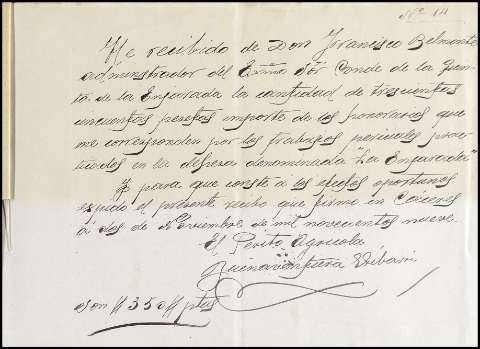 Nº 14
He recibido de Don Francisco Belmonte
administrador del Exmo Sõr Conde de la Quin-
ta de la Enjarada la cantidad de trescuentas
cincuentas pesetas importe de los honorarios que
me corresponden por los trabajos periciales prac-
ticados en la dehesa denominada "La Enjarada"
Y para que conste á los efectos oportunos
espido el presente recibo que firmo en Cáceres
á dos de de mil novecientos nueve.
El Perito Agricola
Buenaventura
Son # 350 # ptas